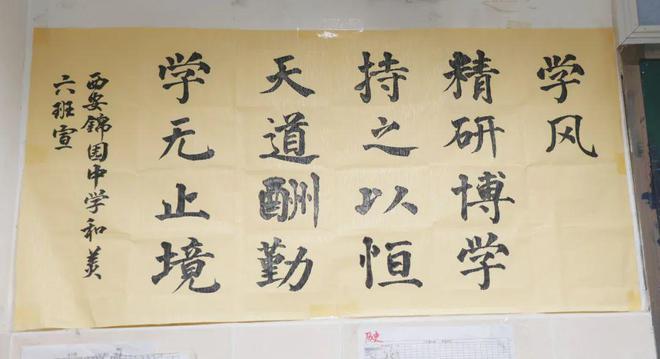 学风
精研博学
持之以恒
天道酬勤
学无止境
西安锦园中学和美
六班宣
历史